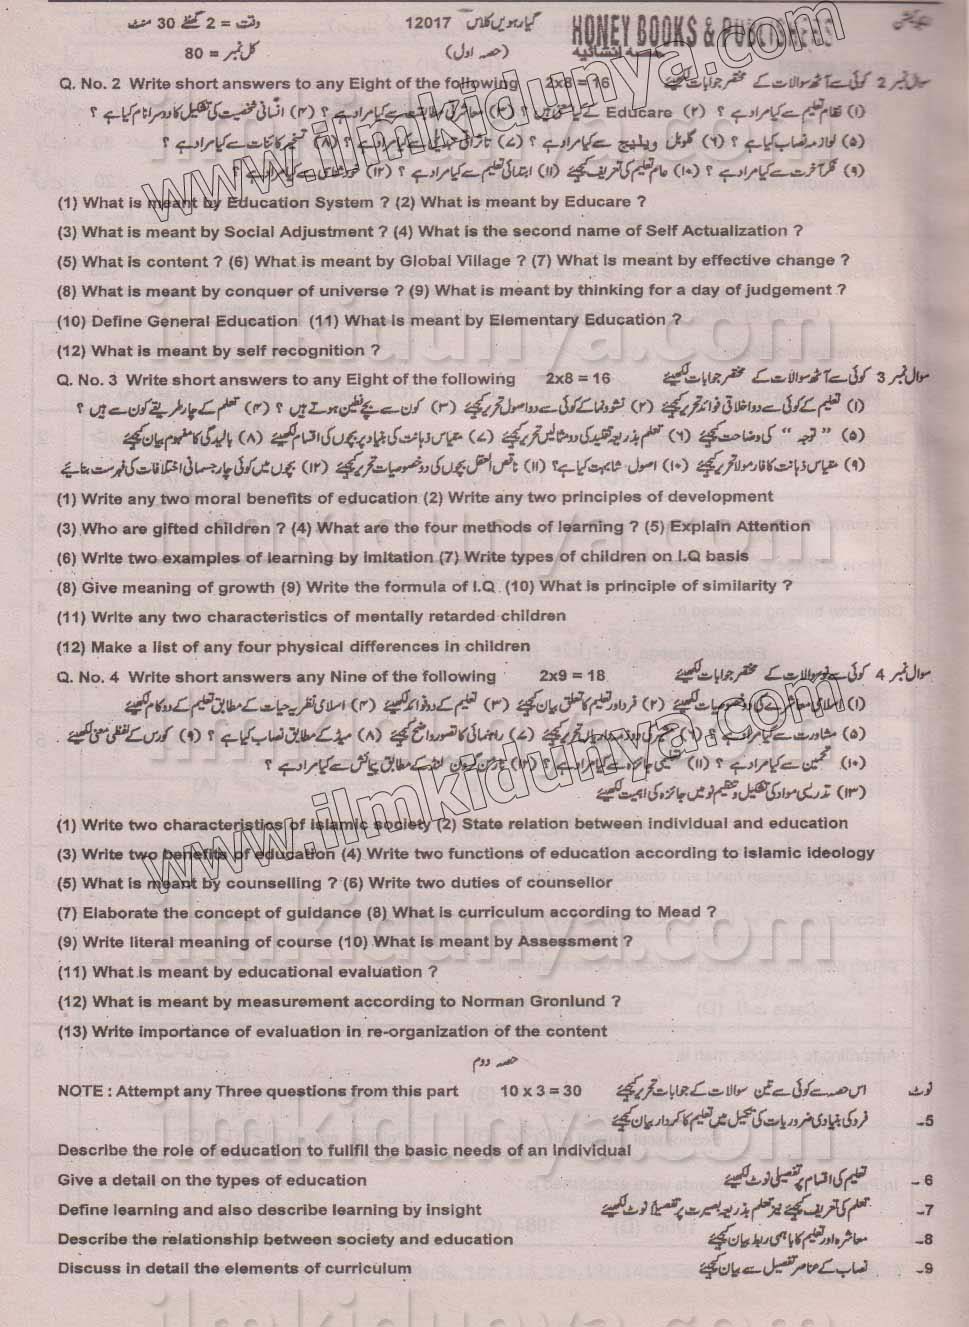 وقت = 2 گھنٹے 30 منٹ 12017 گیارہویں کلاس HONEY BOOKS & PUBLISHERS
کل نمبر = 80 (حصہ اول) حصہ انشائیہ
Q. No. 2 Write short answers to any Eight of the following 2x8 = 16 سوال نمبر 2 کوئی سے آٹھ سوالات کے مختصر جوابات لکھیئے
(۱) نظام تعلیم سے کیا مراد ہے ؟ (۲) Educare کے کیا معنی ہیں ؟ (۳) معاشرتی مطابقت سے کیا مراد ہے ؟ (۴) انسانی شخصیت کی تشکیل کا دوسرا نام کیا ہے ؟
(۵) لوازمہ نصاب کیا ہے ؟ (۶) گلوبل ویلیج سے کیا مراد ہے ؟ (۷) تاثراتی تبدیلی سے کیا مراد ہے ؟ (۸) تسخیر کائنات سے کیا مراد ہے ؟
(۹) فکر آخرت سے کیا مراد ہے ؟ (۱۰) عام تعلیم کی تعریف کیجئے (۱۱) ابتدائی تعلیم سے کیا مراد ہے ؟ (۱۲) خود شناسی سے کیا مراد ہے ؟
(1) What is meant by Education System ? (2) What is meant by Educare ?
(3) What is meant by Social Adjustment ? (4) What is the second name of Self Actualization ?
(5) What is content ? (6) What is meant by Global Village ? (7) What is meant by effective change ?
(8) What is meant by conquer of universe ? (9) What is meant by thinking for a day of judgement ?
(10) Define General Education (11) What is meant by Elementary Education ?
(12) What is meant by self recognition ?
Q. No. 3 Write short answers to any Eight of the following 2x8 = 16 سوال نمبر 3 کوئی سے آٹھ سوالات کے مختصر جوابات لکھیئے
(۱) تعلیم کے کوئی سے دو اخلاقی فوائد تحریر کیجئے (۲) نشوونما کے کوئی سے دو اصول تحریر کیجئے (۳) کون سے بچے فطین ہوتے ہیں ؟ (۴) تعلم کے چار طریقے کون سے ہیں ؟
(۵) " توجہ " کی وضاحت کیجئے (۶) تعلم بذریعہ تقلید کی دو مثالیں تحریر کیجئے (۷) مقیاس ذہانت کی بنیاد پر بچوں کی اقسام لکھیئے (۸) بالیدگی کا مفہوم بیان کیجئے
(۹) مقیاس ذہانت کا فارمولا تحریر کیجئے (۱۰) اصول مشابہت کیا ہے؟ (۱۱) ناقص العقل بچوں کی دو خصوصیات تحریر کیجئے (۱۲) بچوں میں کوئی چار جسمانی اختلافات کی فہرست بنایئے
(1) Write any two moral benefits of education (2) Write any two principles of development
(3) Who are gifted children ? (4) What are the four methods of learning ? (5) Explain Attention
(6) Write two examples of learning by imitation (7) Write types of children on I.Q basis
(8) Give meaning of growth (9) Write the formula of I.Q (10) What is principle of similarity ?
(11) Write any two characteristics of mentally retarded children
(12) Make a list of any four physical differences in children
Q. No. 4 Write short answers any Nine of the following 2x9 = 18 سوال نمبر 4 کوئی سے نو سوالات کے مختصر جوابات لکھیئے
(۱) اسلامی معاشرے کی دو خصوصیات لکھیئے (۲) فرد اور تعلیم کا تعلق بیان کیجئے (۳) تعلیم کے دو فوائد لکھیئے (۴) اسلامی نظریہ حیات کے مطابق تعلیم کے دو کام لکھیئے
(۵) مشاورت سے کیا مراد ہے ؟ (۶) مشیر کی دو ذمہ داریاں تحریر کیجئے (۷) راہنمائی کا تصور واضح کیجئے (۸) میڈ کے مطابق نصاب کیا ہے ؟ (۹) کورس کے لفظی معنی لکھیئے
(۱۰) تخمین سے کیا مراد ہے ؟ (۱۱) تعلیمی جائزہ سے کیا مراد ہے ؟ (۱۲) نارمن گرون لنڈ کے مطابق پیمائش سے کیا مراد ہے ؟
(۱۳) تدریسی مواد کی تشکیل و تنظیم نو میں جائزہ کی اہمیت لکھیئے
(1) Write two characteristics of Islamic society (2) State relation between individual and education
(3) Write two benefits of education (4) Write two functions of education according to islamic ideology
(5) What is meant by counselling ? (6) Write two duties of counsellor
(7) Elaborate the concept of guidance (8) What is curriculum according to Mead ?
(9) Write literal meaning of course (10) What is meant by Assessment ?
(11) What is meant by educational evaluation ?
(12) What is meant by measurement according to Norman Gronlund ?
(13) Write importance of evaluation in re-organization of the content
حصہ دوم
NOTE : Attempt any Three questions from this part 10 x 3 = 30 نوٹ اس حصہ سے کوئی سے تین سوالات کے جوابات تحریر کیجئے
5- فرد کی بنیادی ضروریات کی تکمیل میں تعلیم کا کردار بیان کیجئے
Describe the role of education to fullfil the basic needs of an individual
Give a detail on the types of education 6- تعلیم کی اقسام پر تفصیلی نوٹ لکھیئے
Define learning and also describe learning by insight 7- تعلم کی تعریف کیجئے نیز تعلم بذریعہ بصیرت پر تفصیلاً نوٹ لکھیئے
Describe the relationship between society and education 8- معاشرہ اور تعلیم کا باہمی ربط بیان کیجئے
Discuss in detail the elements of curriculum 9- نصاب کے عناصر تفصیل سے بیان کیجئے
www.ilmkidunya.com
www.ilmkidunya.com